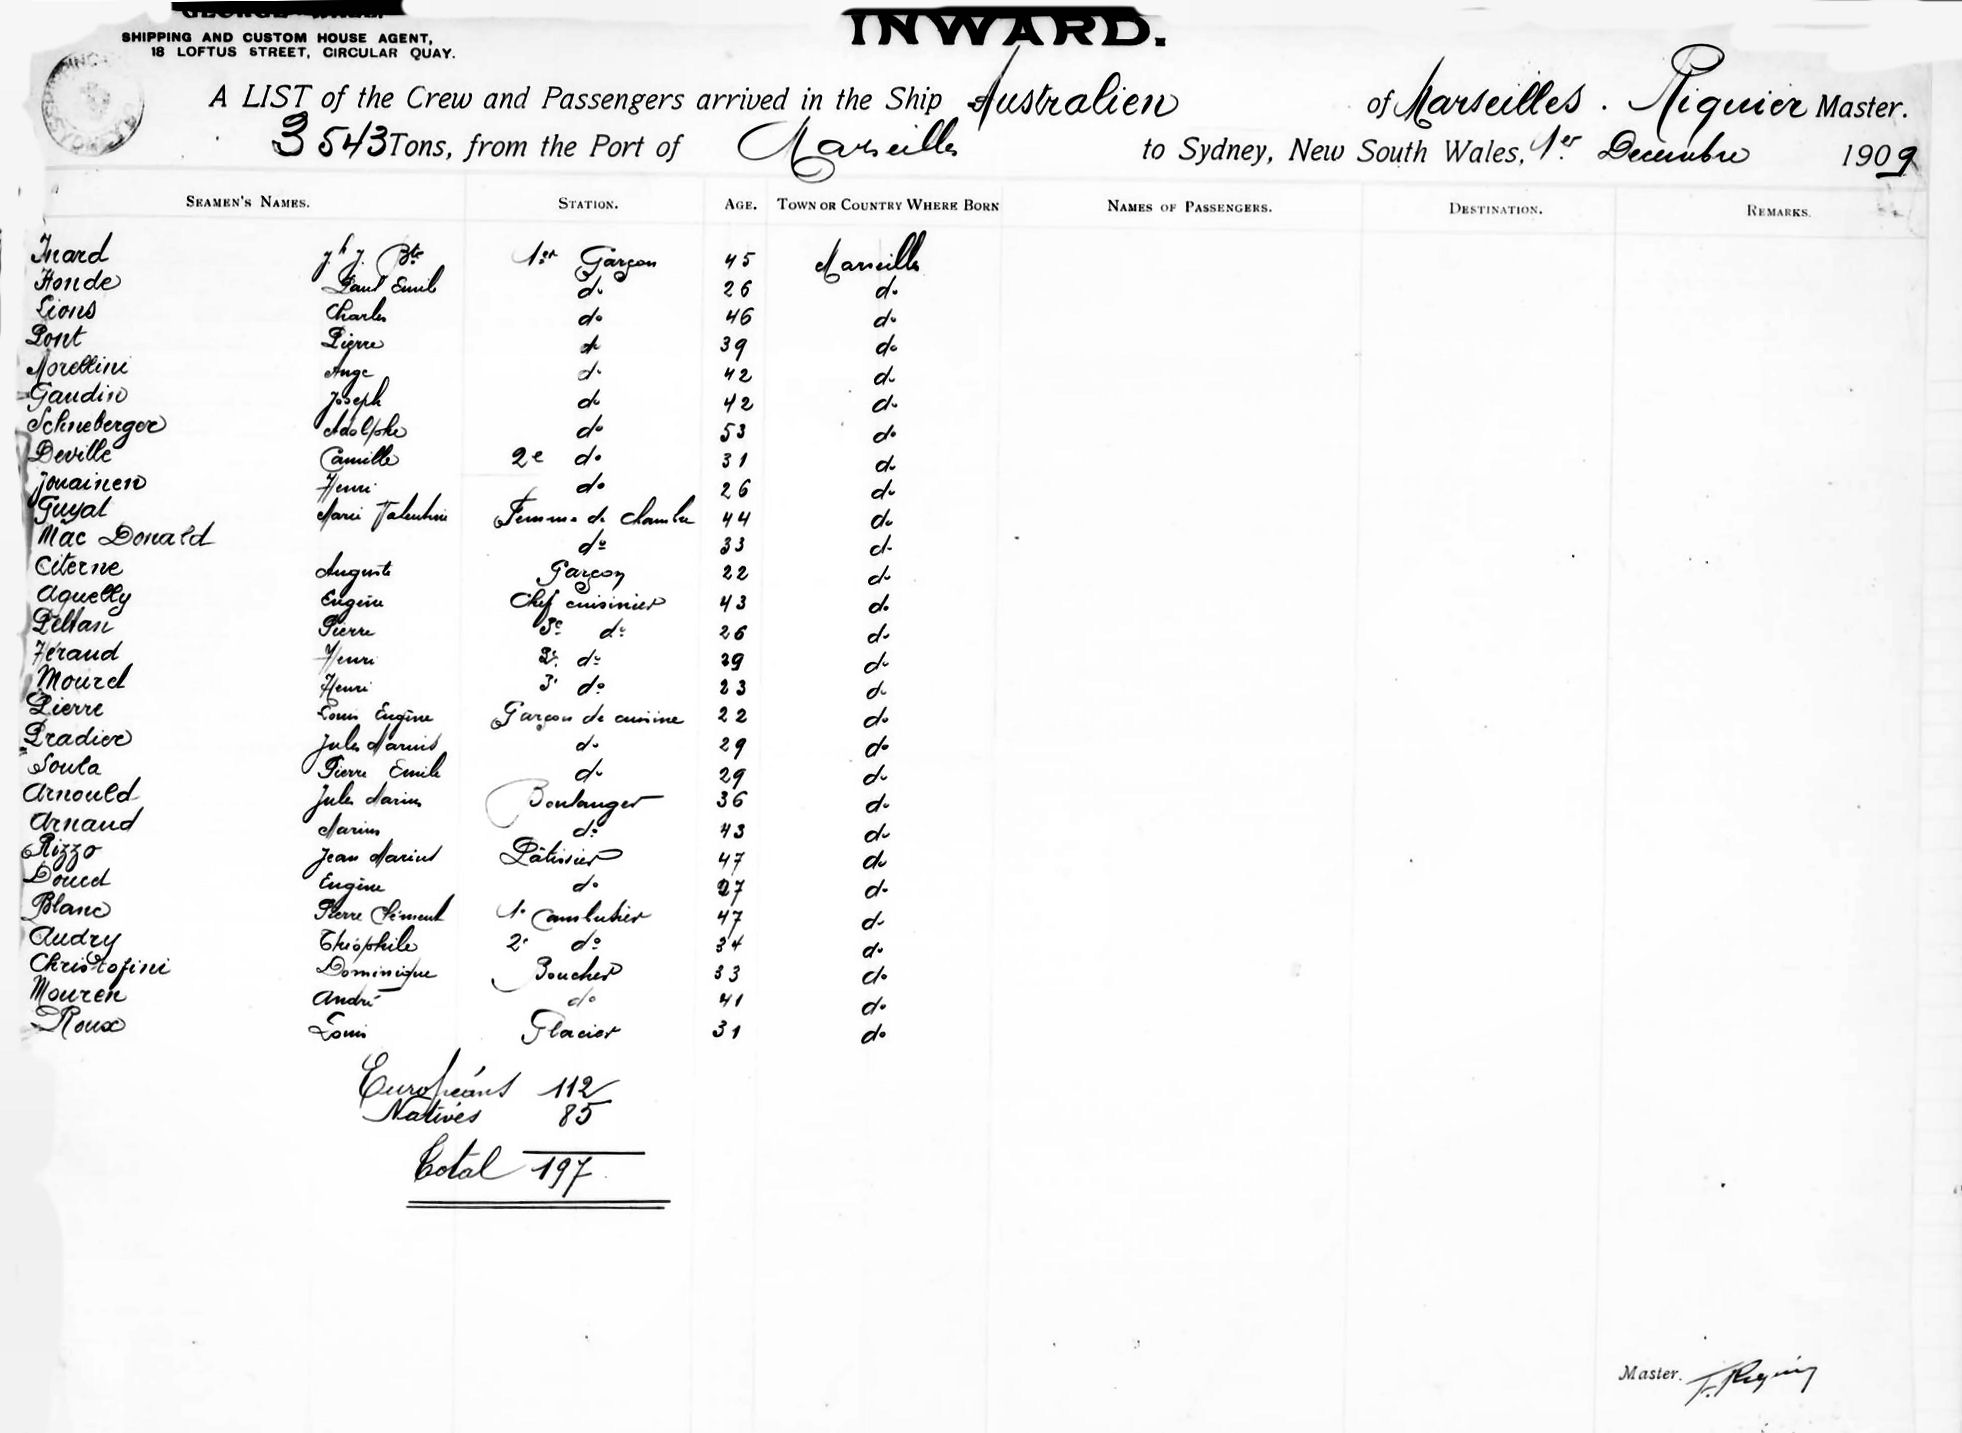 INWARD.
SHIPPING AND CUSTOM HOUSE AGENT,
18 LOFTUS STREET, CIRCULAR QUAY.
A LIST of the Crew and Passengers arrived in the Ship Australien of Marseilles. Riquier Master.
3543 Tons, from the Port of Marseilles to Sydney, New South Wales, 1er Decembre 1909
SEAMEN'S NAMES. STATION. AGE. TOWN OR COUNTRY WHERE BORN NAMES OF PASSENGERS. DESTINATION. REMARKS.
Inard Jh J. Bte 1er Garçon 45 Marseille
Honde Paul Emile do 26 do
Lions Charles do 46 do
Pont Pierre do 39 do
Morellini Ange do 42 do
Gaudin Joseph do 42 do
Schneberger Adolphe do 53 do
Deville Camille 2e do 31 do
Jouainen Henri do 26 do
Guyat Marie Valentine Femme de chambre 44 do
Mac Donald do 33 do
Citerne Auguste Garçon 22 do
Aquelly Eugène Chef cuisinier 43 do
Peltan Pierre 3e do 26 do
Féraud Henri 2e do 29 do
Mouret Henri 3e do 23 do
Pierre Louis Eugène Garçon de cuisine 22 do
Pradier Jules Marius do 29 do
Soula Pierre Emile do 29 do
Arnould Jules Marius Boulanger 36 do
Arnaud Marius do 43 do
Rizzo Jean Marius Pâtissier 47 do
Doucet Eugène do 27 do
Blanc Pierre Clément 1e Cambusier 47 do
Audry Théophile 2e do 34 do
Christofini Dominique Boucher 33 do
Mouren André do 41 do
Roux Louis Glacier 31 do
Européans 112
Natives 85
Total 197
Master. F. Riquier